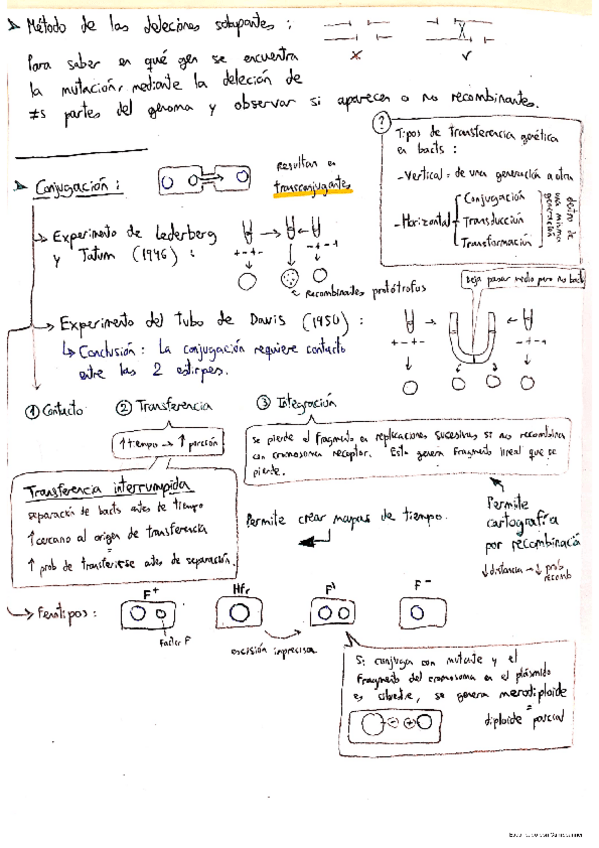 Método de las deleciones solapantes :
Para saber en qué gen se encuentra
la mutación, mediante la deleción de
≠s partes del genoma y observar si aparecen o no recombinantes.
x
✓
?
Tipos de transferencia genética
en bacts :
- Vertical = de una generación a otra
- Horizontal
Conjugación
Transducción
Transformación
dentro de
una misma
generación
Conjugación :
resultan en
transconjugantes
Experimento de Lederberg
y Tatum (1946) :
+-+-
-+-+
recombinantes protótrofos
Deja pasar medio pero no bact
Experimento del Tubo de Davis (1950) :
Conclusión : La conjugación requiere contacto
entre las 2 estirpes.
+-+-
-+-+
① Contacto
② Transferencia
③ Integración
↑ tiempo → ↑ porción
Se pierde el fragmento en replicaciones sucesivas si no recombina
con cromosoma receptor. Esto genera fragmento lineal que se
pierde.
Transferencia interrumpida
separación de bacts antes de tiempo
↑ cercano al origen de transferencia
=
↑ prob de transferirse antes de separación.
Permite crear mapas de tiempo.
Permite
cartografía
por recombinación
↓ distancia → ↓ prob
recomb
Fenotipos :
F+
Hfr
F'
F-
Factor F
escisión imprecisa
Si conjuga con mutante y el
fragmento del cromosoma en el plásmido
es silvestre, se genera merodiploide
=
diploide parcial